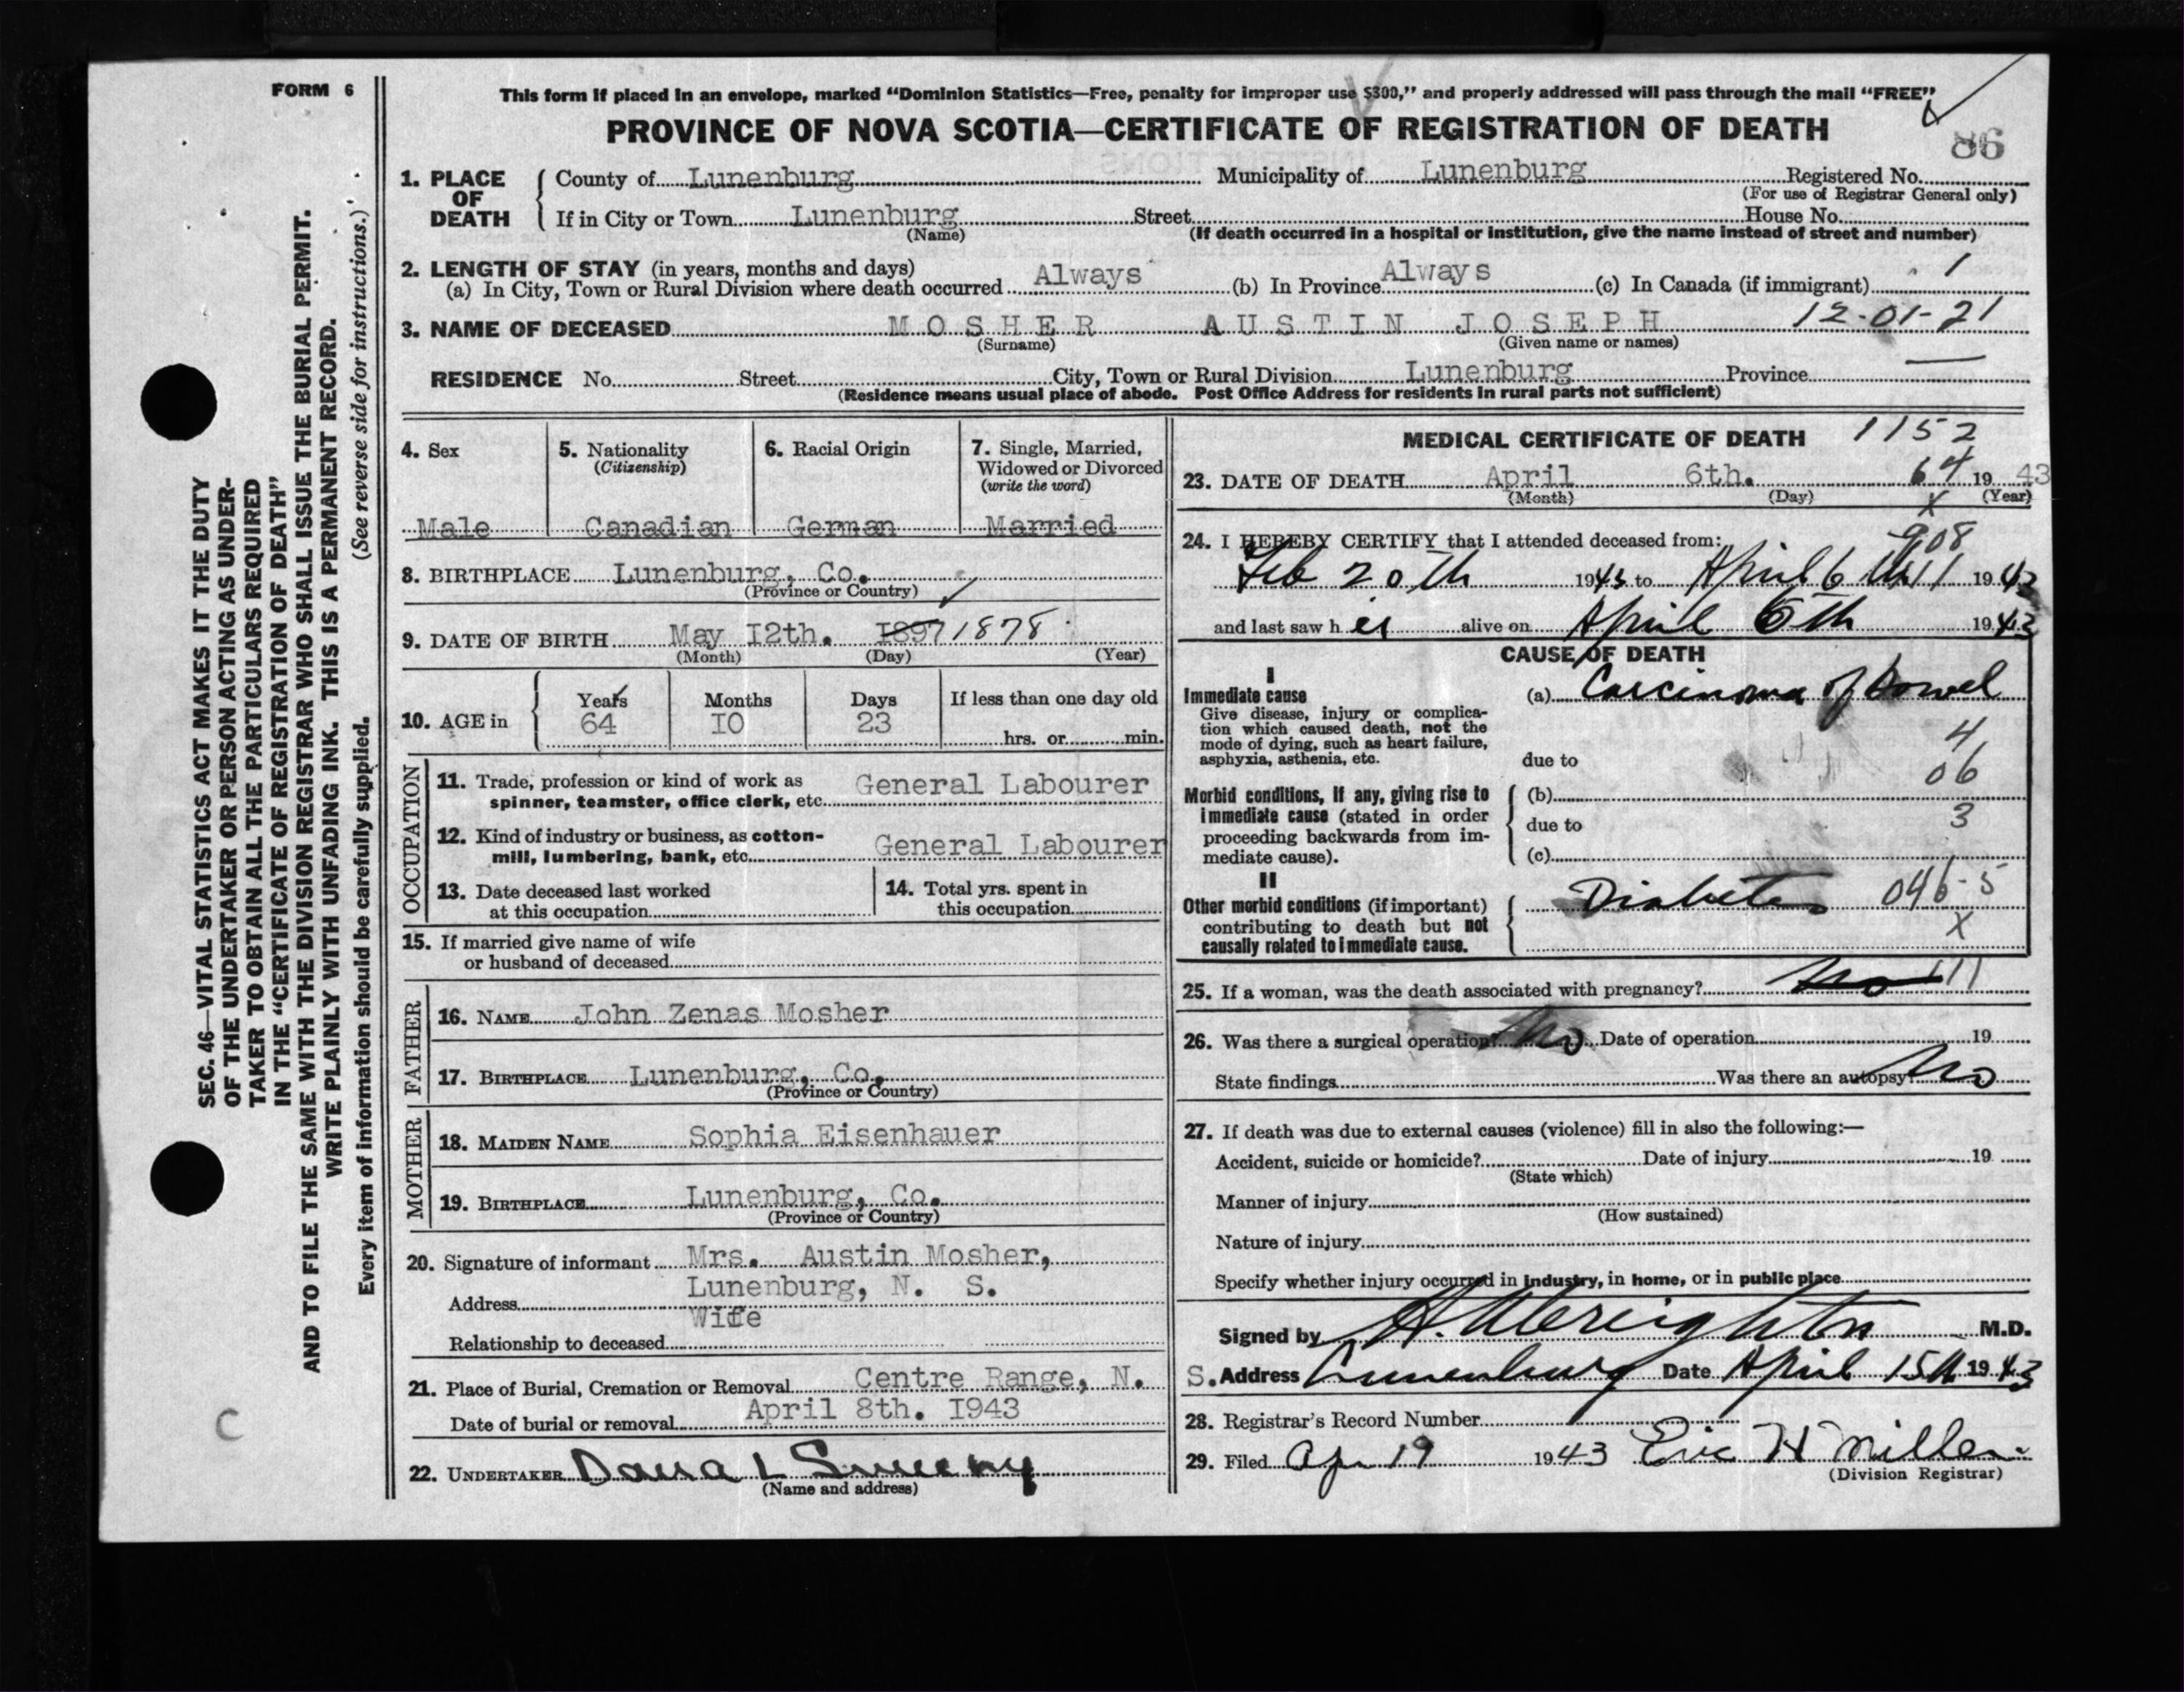 FORM 6
This form if placed in an envelope, marked "Dominion Statistics—Free, penalty for improper use $300," and properly addressed will pass through the mail "FREE"
PROVINCE OF NOVA SCOTIA—CERTIFICATE OF REGISTRATION OF DEATH
86
1. PLACE OF DEATH
County of Lunenburg Municipality of Lunenburg Registered No.
(For use of Registrar General only)
If in City or Town Lunenburg Street House No.
(Name) (If death occurred in a hospital or institution, give the name instead of street and number)
2. LENGTH OF STAY (in years, months and days)
(a) In City, Town or Rural Division where death occurred Always (b) In Province Always (c) In Canada (if immigrant) 1
3. NAME OF DECEASED MOSHER AUSTIN JOSEPH 12-01-21
(Surname) (Given name or names)
RESIDENCE No. Street City, Town or Rural Division Lunenburg Province
(Residence means usual place of abode. Post Office Address for residents in rural parts not sufficient)
4. Sex
Male
5. Nationality
(Citizenship)
Canadian
6. Racial Origin
German
7. Single, Married, Widowed or Divorced
(write the word)
Married
8. BIRTHPLACE Lunenburg, Co.
(Province or Country)
9. DATE OF BIRTH May I2th. I897 1878
(Month) (Day) (Year)
10. AGE in
Years Months Days If less than one day old
64 IO 23 hrs. or min.
OCCUPATION
11. Trade, profession or kind of work as General Labourer
spinner, teamster, office clerk, etc.
12. Kind of industry or business, as cotton-
mill, lumbering, bank, etc. General Labourer
13. Date deceased last worked
at this occupation
14. Total yrs. spent in
this occupation
15. If married give name of wife
or husband of deceased
FATHER
16. NAME John Zenas Mosher
17. BIRTHPLACE Lunenburg, Co.
(Province or Country)
MOTHER
18. MAIDEN NAME Sophia Eisenhauer
19. BIRTHPLACE Lunenburg, Co.
(Province or Country)
20. Signature of informant Mrs. Austin Mosher,
Address Lunenburg, N. S.
Relationship to deceased Wife
21. Place of Burial, Cremation or Removal Centre Range, N. S.
Date of burial or removal April 8th. I943
22. UNDERTAKER Dana L Sweeny
(Name and address)
MEDICAL CERTIFICATE OF DEATH 1152
23. DATE OF DEATH April 6th. 64 19 43
(Month) (Day) X (Year)
24. I HEREBY CERTIFY that I attended deceased from: 908
Feb 20th 1943 to April 6th 111 1943
and last saw h alive on April 6th 1943
CAUSE OF DEATH
I
Immediate cause
Give disease, injury or complica-
tion which caused death, not the
mode of dying, such as heart failure,
asphyxia, asthenia, etc.
(a) Carcinoma of bowel
4
due to
06
Morbid conditions, if any, giving rise to
immediate cause (stated in order
proceeding backwards from im-
mediate cause).
(b)
due to 3
(c)
II
Other morbid conditions (if important)
contributing to death but not
causally related to immediate cause.
Diabetes 046-5
X
25. If a woman, was the death associated with pregnancy? no 111
26. Was there a surgical operation? No Date of operation 19
State findings Was there an autopsy? No
27. If death was due to external causes (violence) fill in also the following:—
Accident, suicide or homicide? Date of injury 19
(State which)
Manner of injury
(How sustained)
Nature of injury
Specify whether injury occurred in industry, in home, or in public place
Signed by M.D.
Address Lunenburg Date April 15th 1943
28. Registrar's Record Number
29. Filed Apr 19 1943 Eric H Miller
(Division Registrar)
SEC. 46—VITAL STATISTICS ACT MAKES IT THE DUTY
OF THE UNDERTAKER OR PERSON ACTING AS UNDER-
TAKER TO OBTAIN ALL THE PARTICULARS REQUIRED
IN THE "CERTIFICATE OF REGISTRATION OF DEATH"
AND TO FILE THE SAME WITH THE DIVISION REGISTRAR WHO SHALL ISSUE THE BURIAL PERMIT.
WRITE PLAINLY WITH UNFADING INK. THIS IS A PERMANENT RECORD.
Every item of information should be carefully supplied. (See reverse side for instructions.)
C